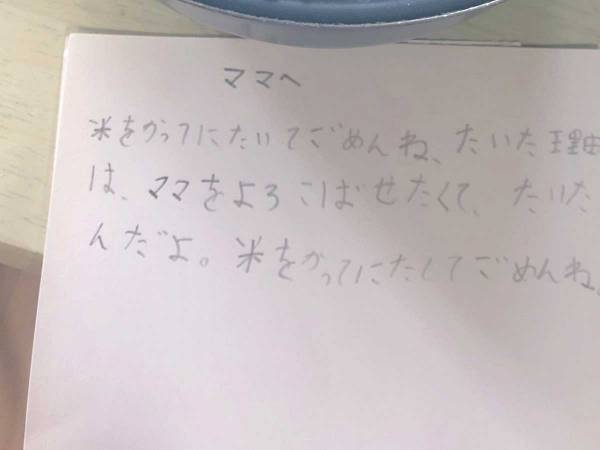 ママへ
米をかってにたいてごめんね、たいた理由
は、ママをよろこばせたくて、たいた
んだよ。米をかってにたしてごめんね。